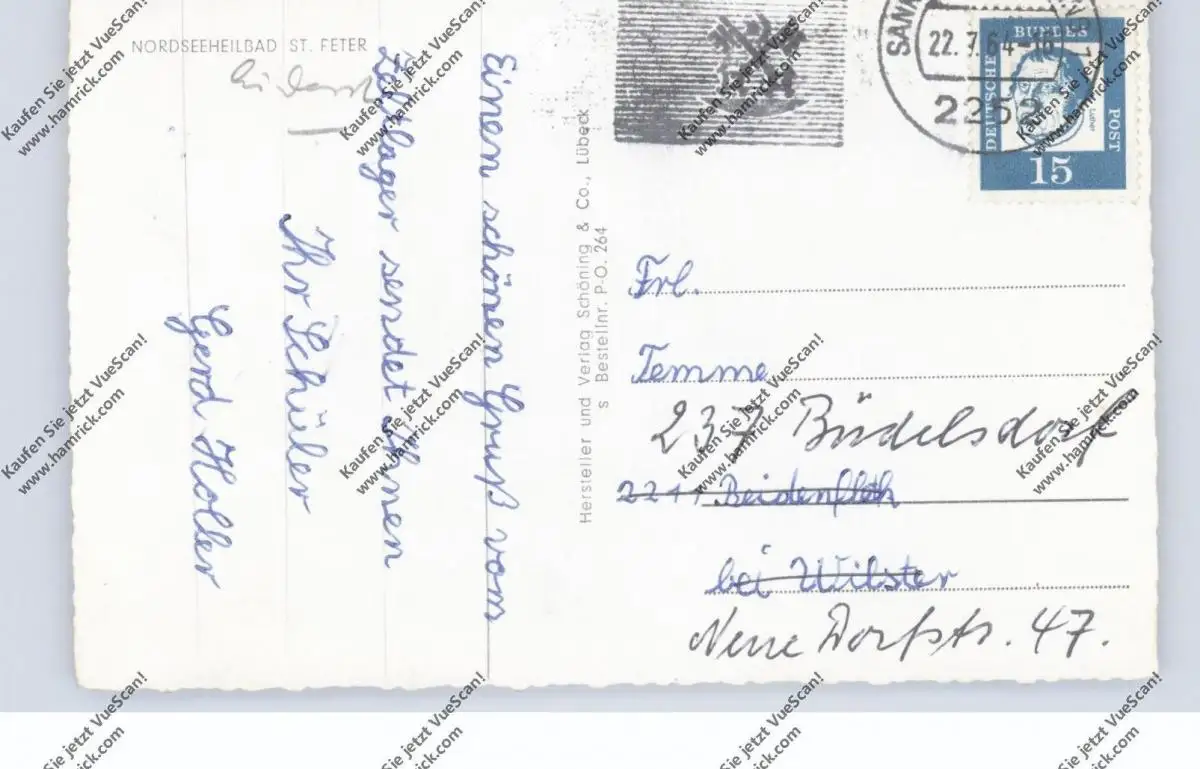 NORDSEEHEILBAD ST. PETER
Einen schönen Gruß vom
Zeltlager sendet Ihnen
Ihr Schüler
Gerd Holler
Hersteller und Verlag Schöning & Co., Lübeck
s Bestellnr. P-O. 264
SANK
22.7.64-16
2252
DEUTSCHE BUNDES POST
Luther
15
Frl.
Temme
237 Büdelsdorf
2211 Beidenfleth
bei Wilster
Neue Dorfstr. 47.
Kaufen Sie jetzt VueScan!
www.hamrick.com